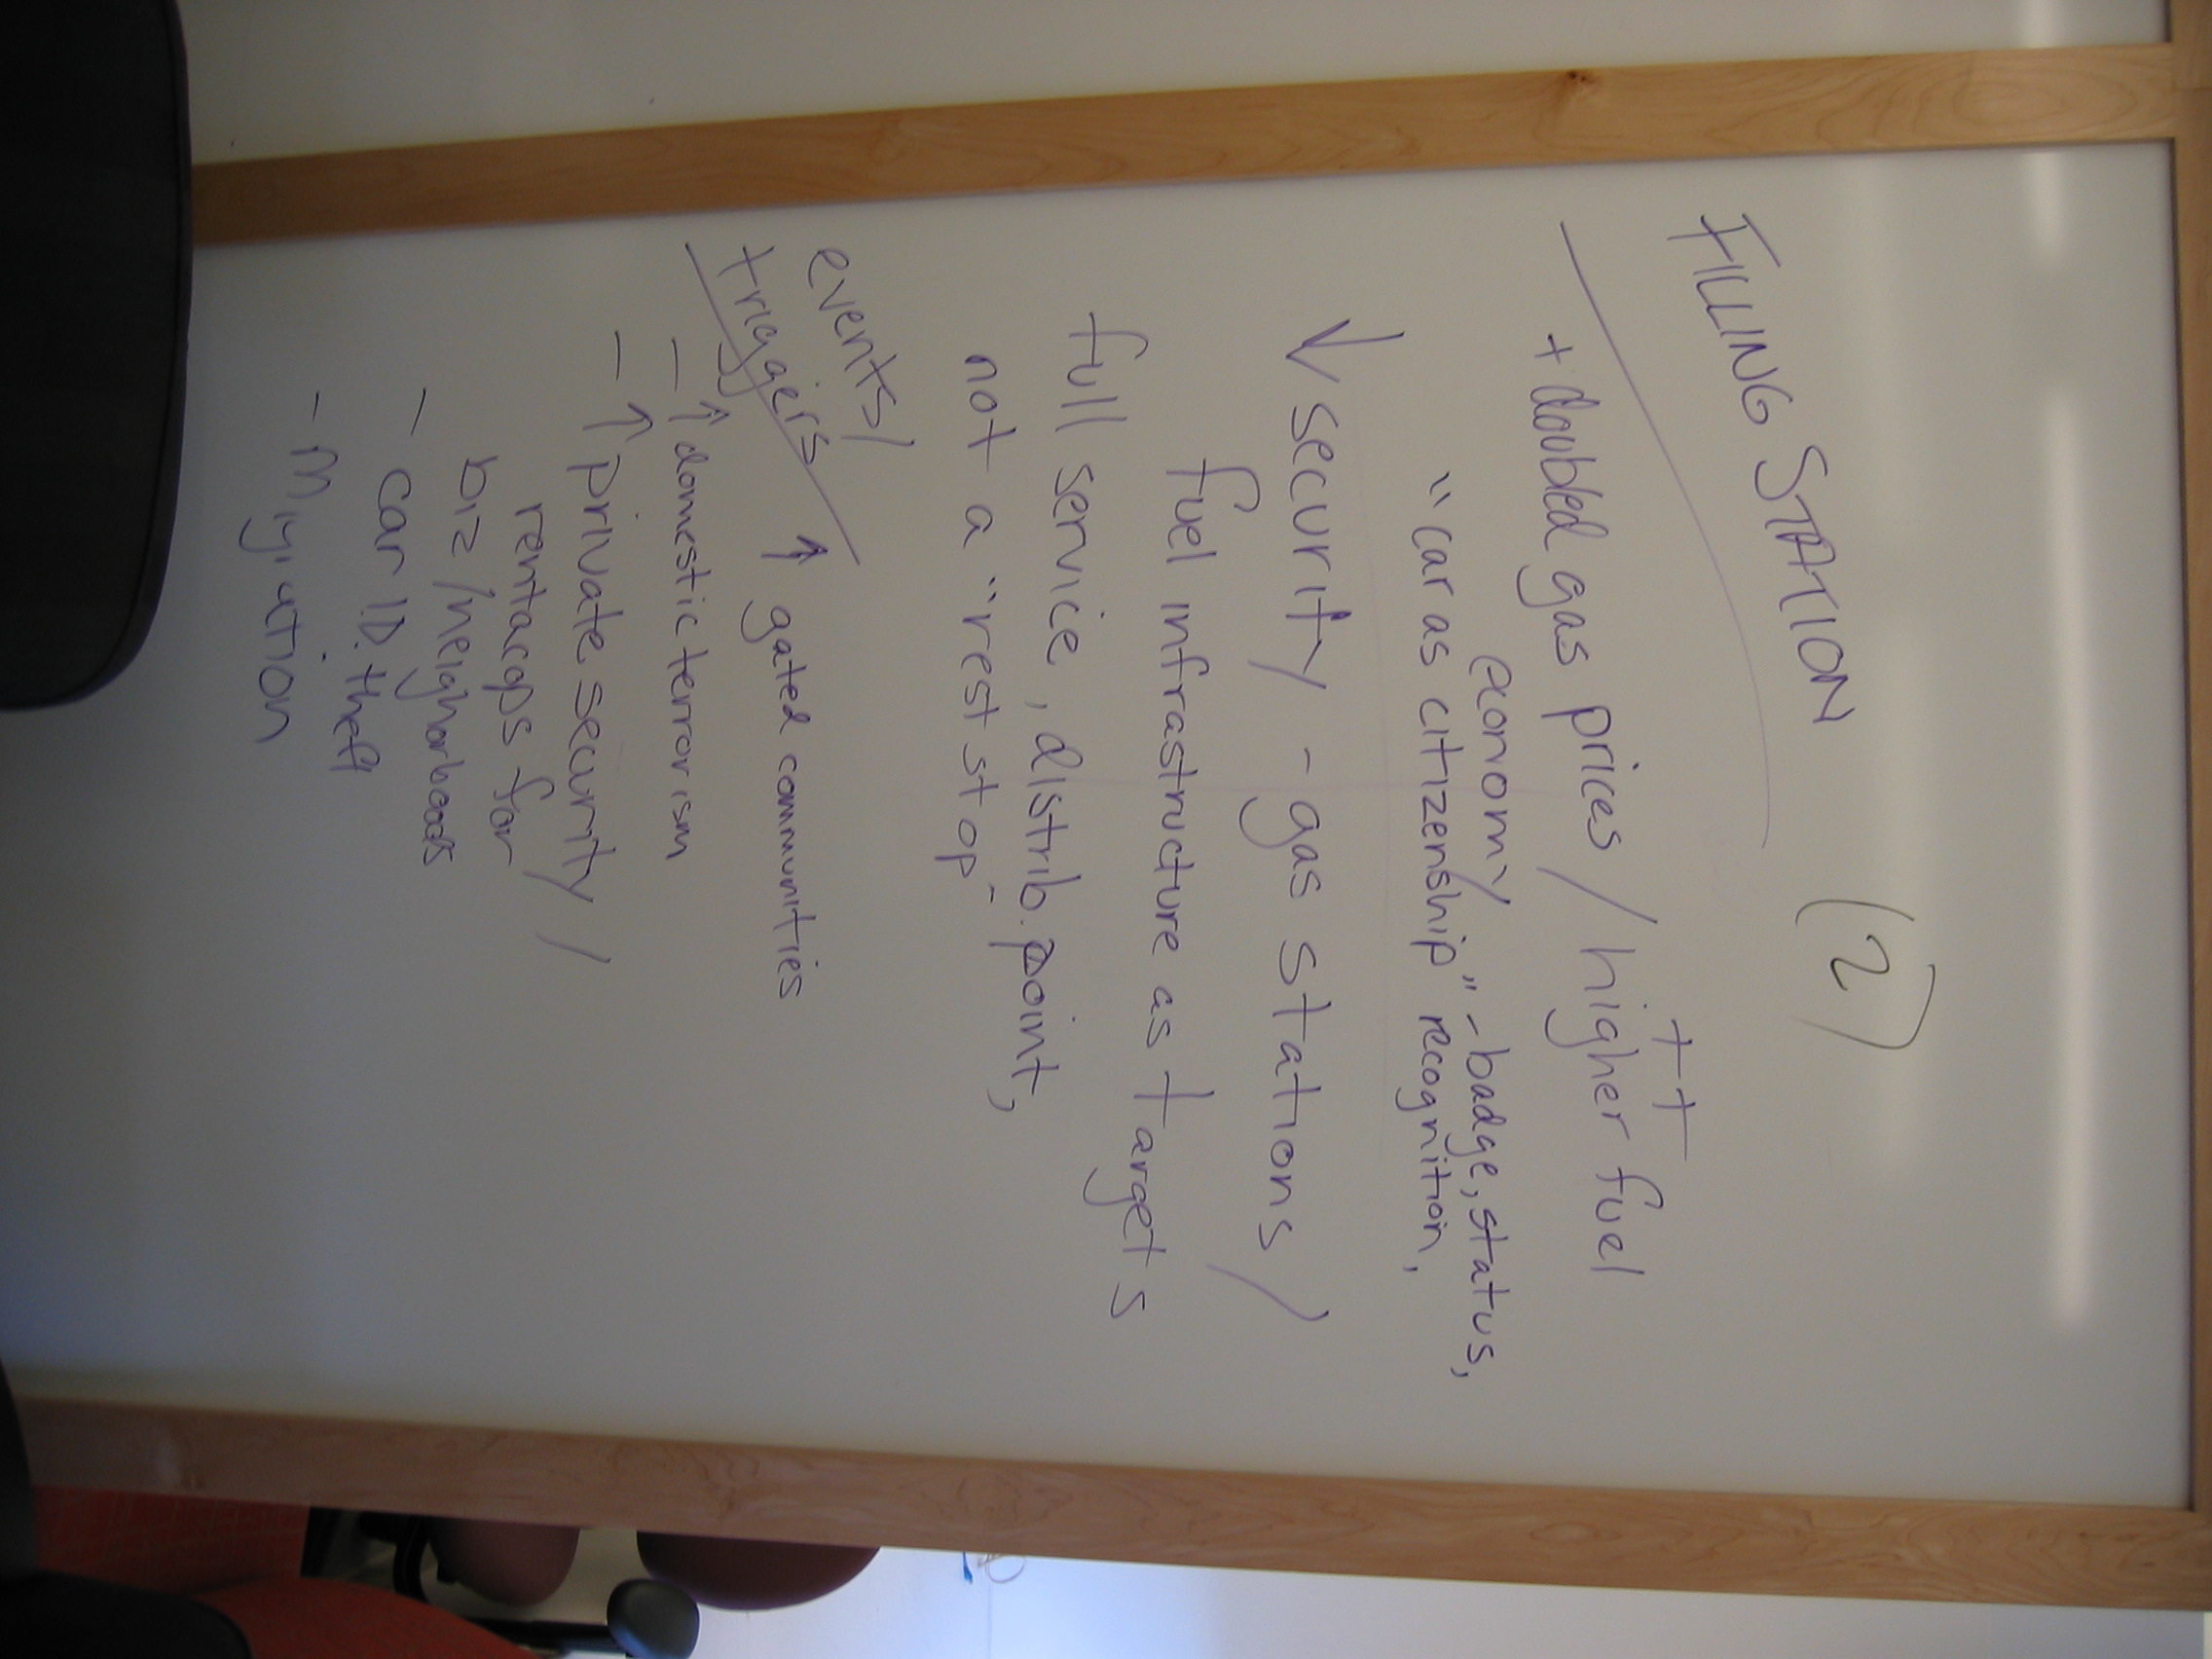 FILLING STATION (2)
++
+ doubled gas prices / higher fuel
economy
"car as citizenship" - badge, status,
recognition,
↓ security - gas stations /
fuel infrastructure as targets
full service, distrib. point,
not a "rest stop"
events/
triggers ↑ gated communities
- ↑ domestic terrorism
- ↑ private security /
rentacops for
biz / neighborhoods
- car ID. theft
- Migration